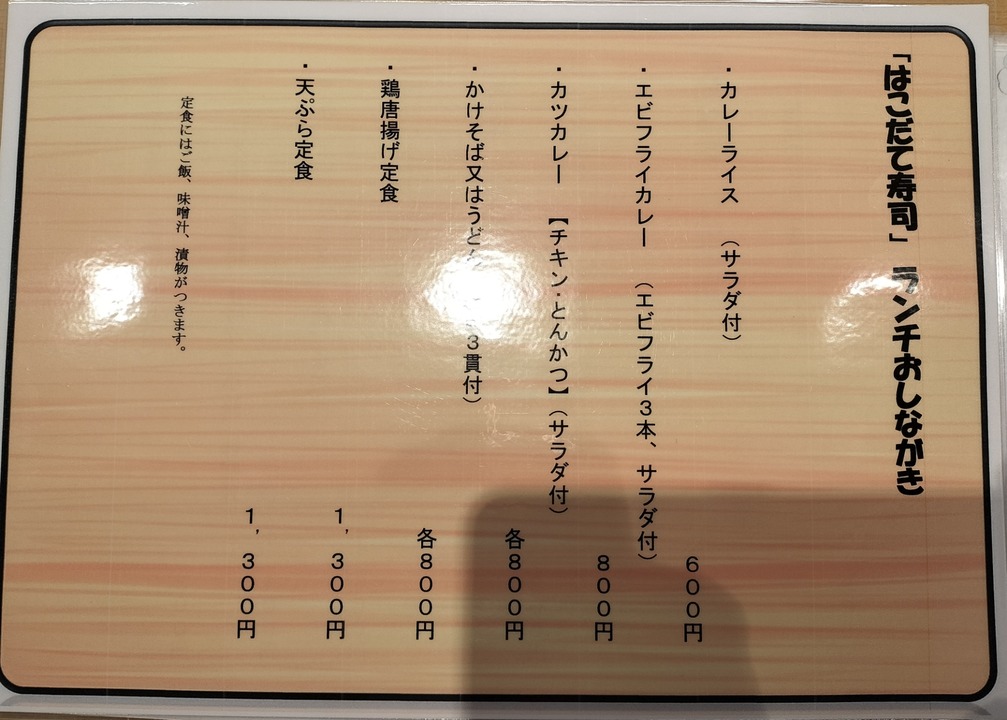 「はこだて寿司」 ランチおしながき
・カレーライス （サラダ付）
６００円
・エビフライカレー （エビフライ３本、サラダ付）
８００円
・カツカレー 【チキン・とんかつ】（サラダ付）
各８００円
・かけそば又はうど ３貫付）
各８００円
・鶏唐揚げ定食
１，３００円
・天ぷら定食
１，３００円
定食にはご飯、味噌汁、漬物がつきます。